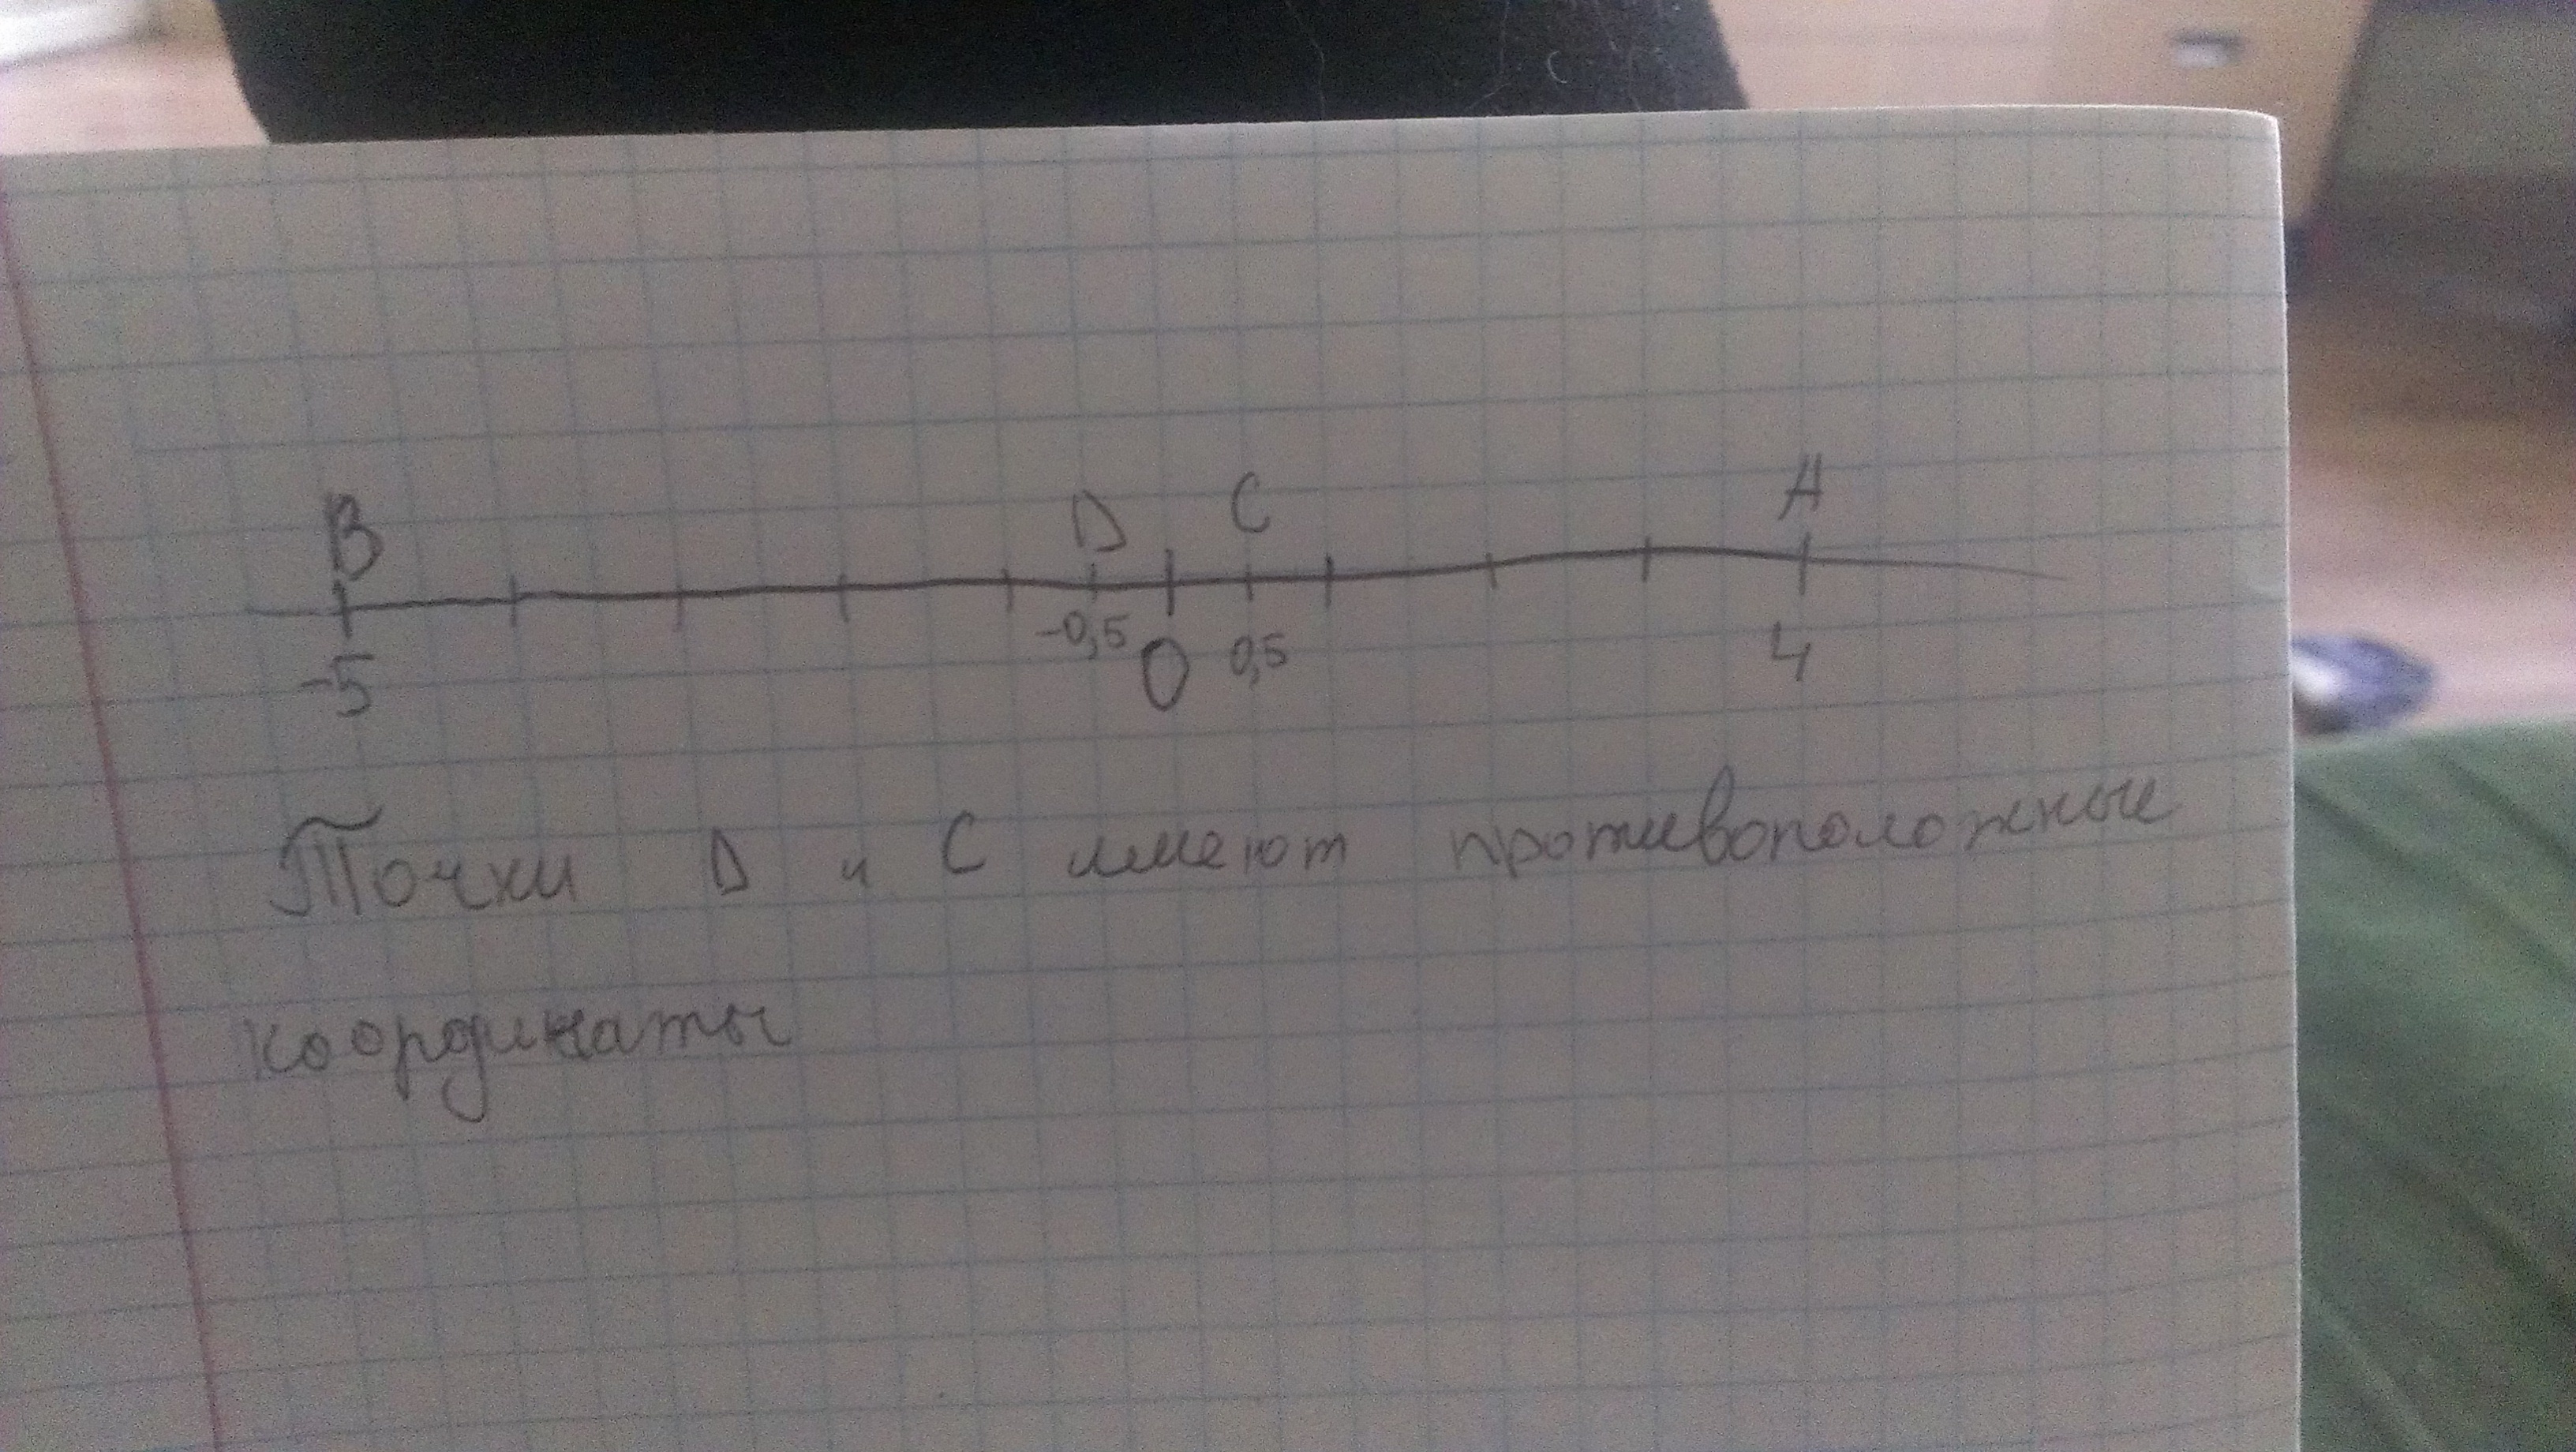 B D C A
-5 -0,5 0 0,5 4
Точки D и C имеют противоположные
координаты